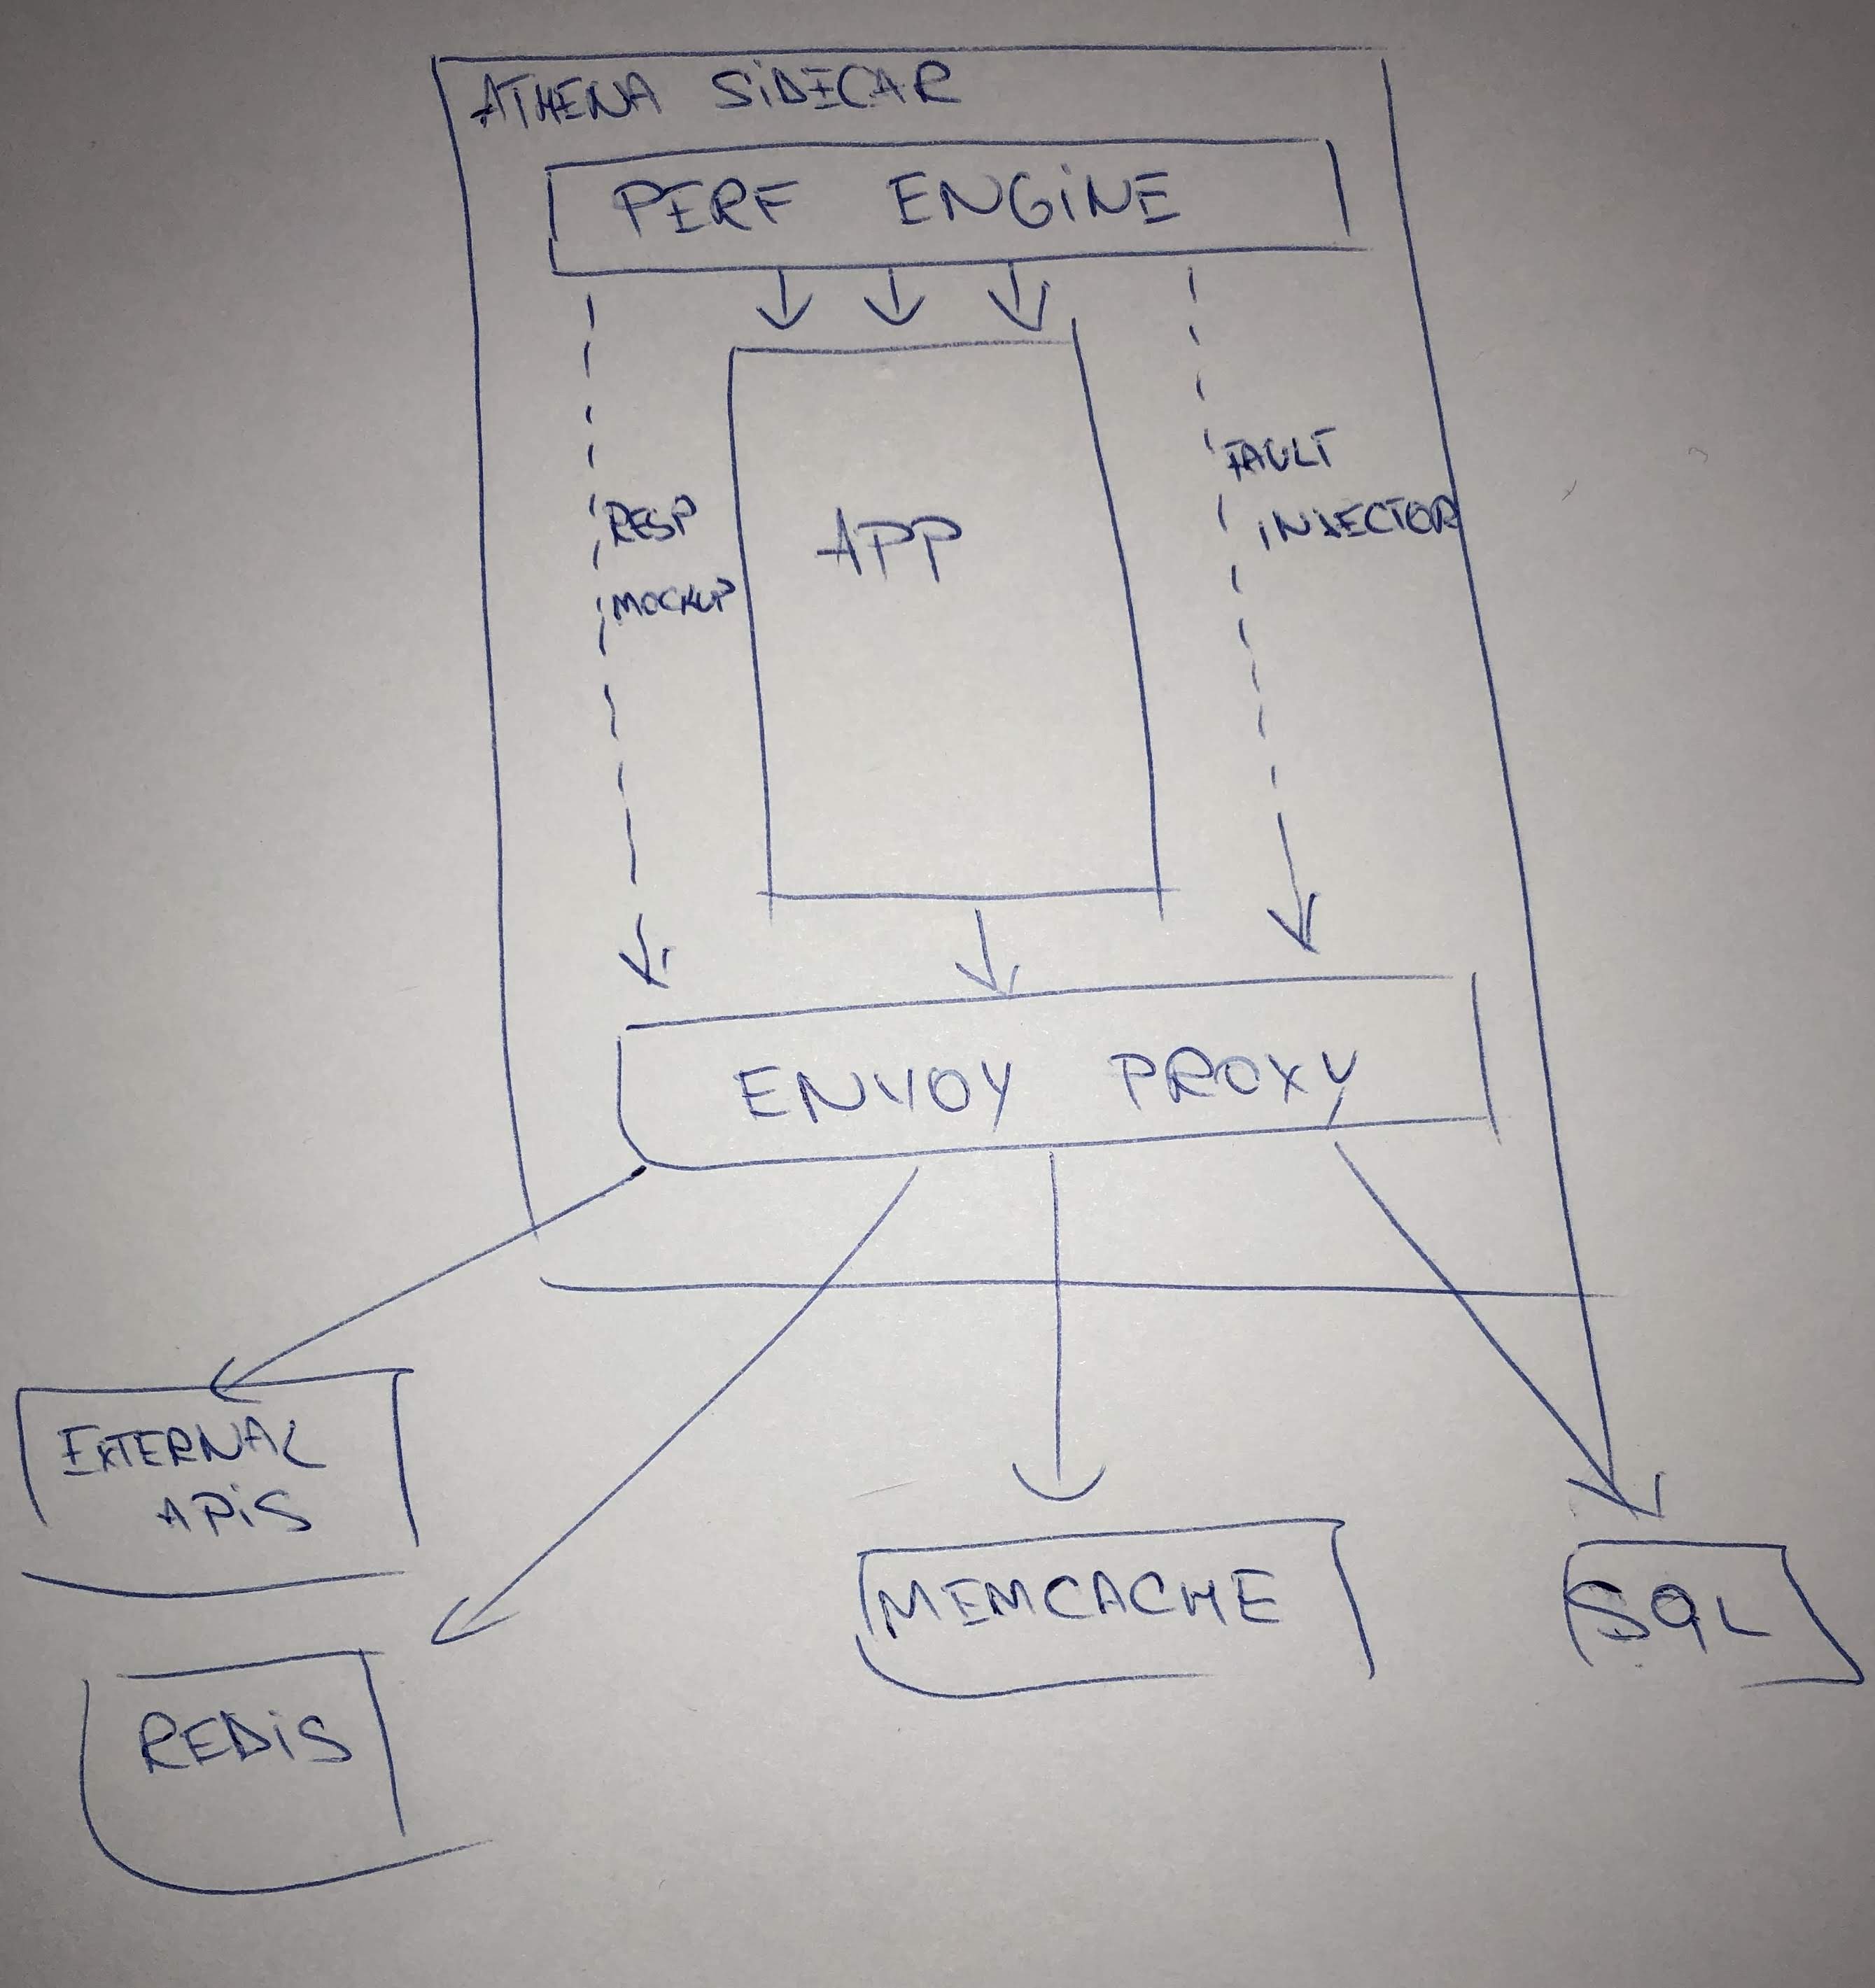 ATHENA SIDECAR
PERF ENGINE
RESP
MOCKUP
APP
FAULT
INJECTOR
ENVOY PROXY
EXTERNAL
APIS
REDIS
MEMCACHE
SQL